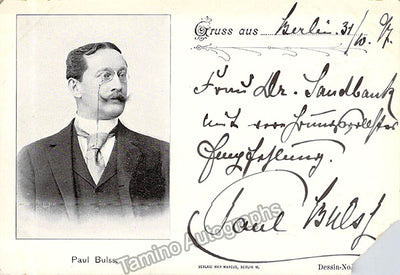 Gruss aus Berlin. 31/10. 97.
Frau Dr. Sandbank
mit
Empfehlung.
Paul Bulss
Paul Bulss.
VERLAG MAX MARCUS, BERLIN W.
Dessin-No.
Tamino Autographs